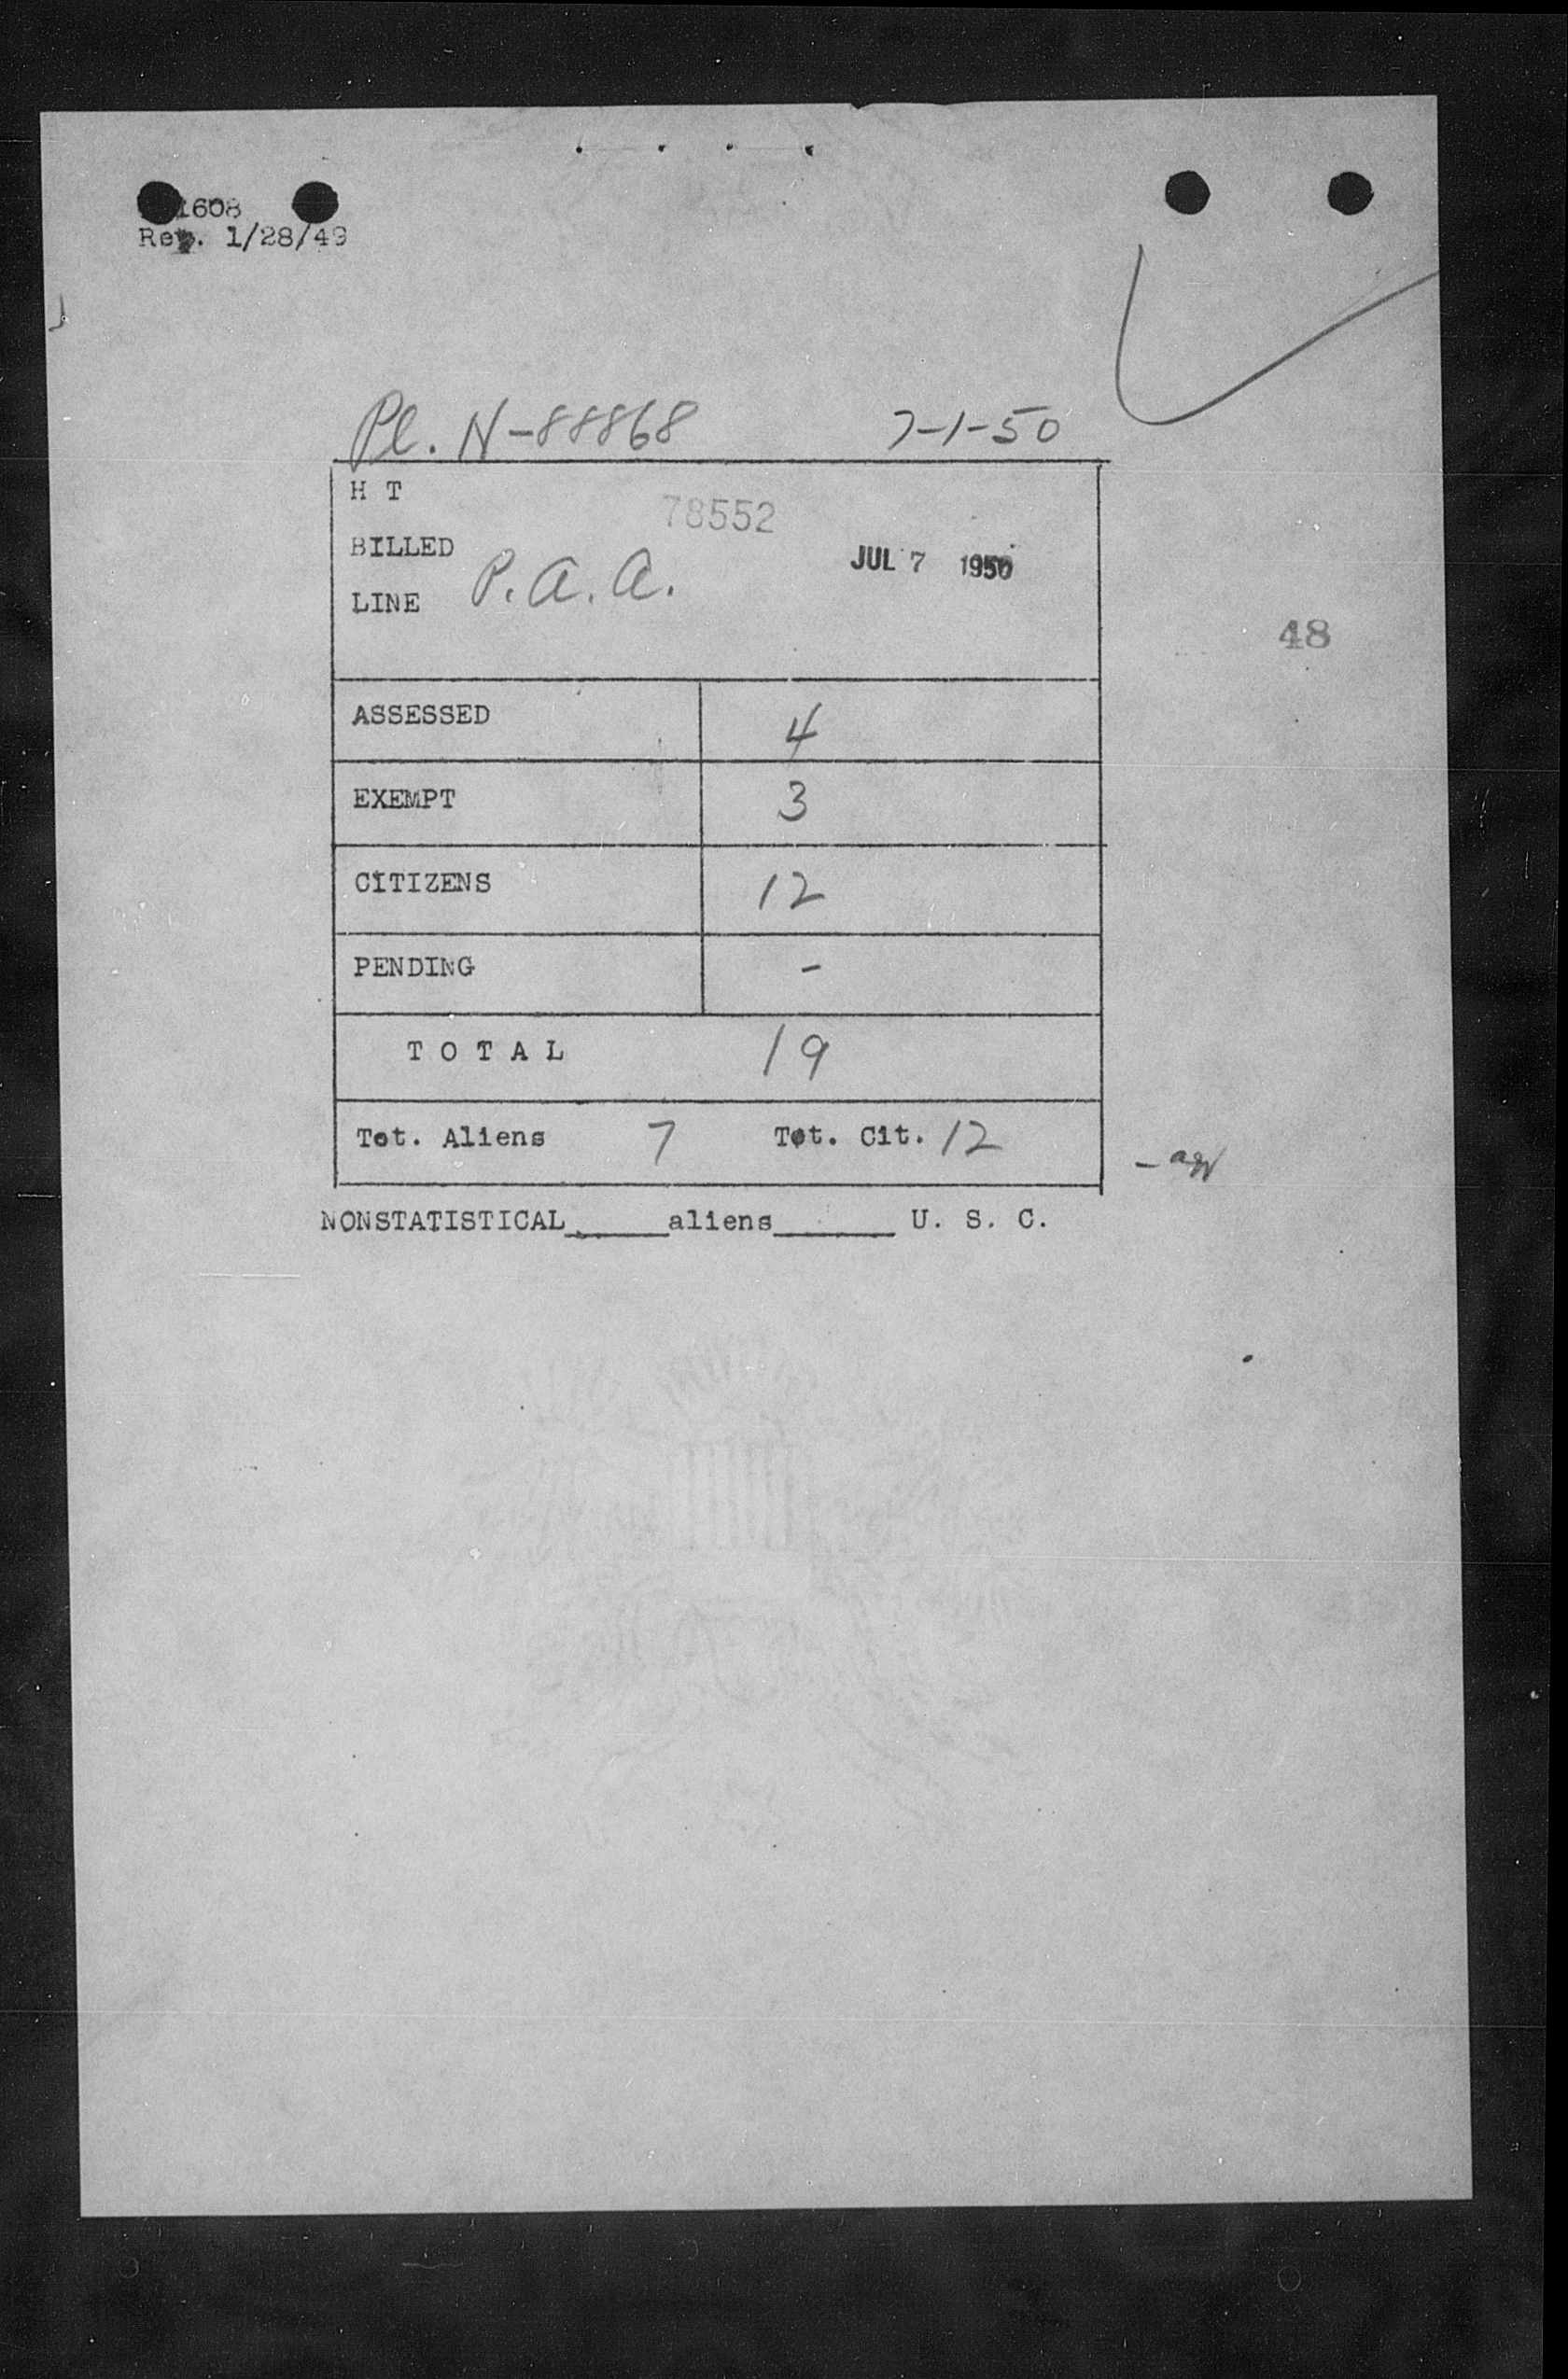 1608
Rev. 1/28/49
Pl. N-88868 7-1-50
H T
78552
BILLED
JUL 7 1950
LINE P.A.A.
48
ASSESSED 4
EXEMPT 3
CITIZENS 12
PENDING -
TOTAL 19
Tot. Aliens 7 Tot. Cit. 12
NONSTATISTICAL_____aliens______ U. S. C.